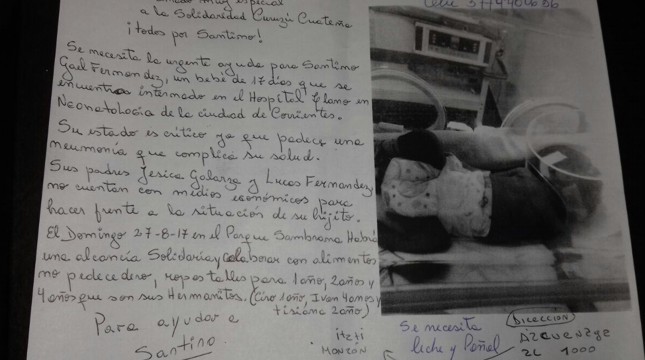 especial
a la Solidaridad Curuzú Cuateña
¡todos por Santino!
Se necesita la urgente ayuda para Santino
Gael Fernandez, un bebé de 17 días que se
encuentra internado en el Hospital Llano en
Neonatología de la ciudad de Corrientes.
Su estado es crítico ya que padece una
neumonía que complica su salud.
Sus padres Jesica Galarza y Lucas Fernandez
no cuentan con medios económicos para
hacer frente a la situación de su hijito.
El Domingo 27-8-17 en el Parque
una alcancía Solidaria y colaborar con alimentos
no pedecedero, ropas talles para 1 año, 2 años y
4 años que son sus Hermanitos. (Ciro 1 año, Ivan 4 anos y
tisiana 2 año)
Para ayudar a
Santino
itatí
MONZÓN
Se necesita
leche y Pañal
DIRECCION
2L 1000